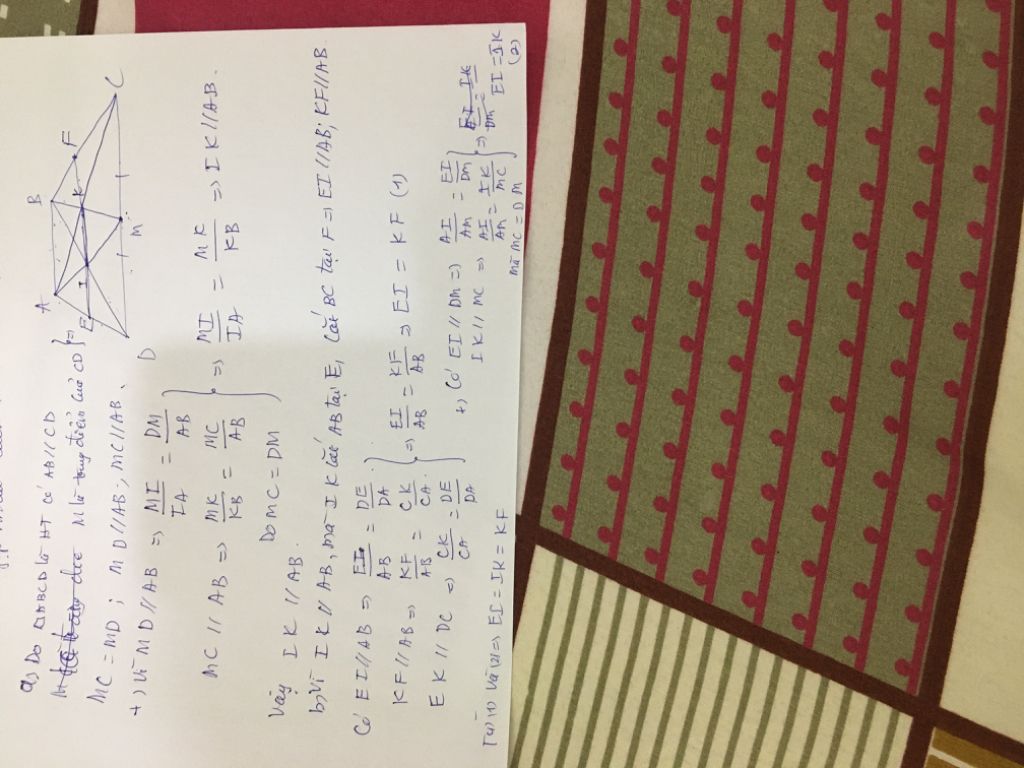 A
B
E
I
K
F
C
D
M
a) Do □ABCD là HT có AB//CD
M là trung điểm của CD } =>
MC = MD ; MD//AB ; MC//AB.
+) Vì MD//AB => MI/IA = DM/AB
MC // AB => MK/KB = MC/AB
Do MC = DM
} => MI/IA = MK/KB => IK//AB.
Vậy IK // AB.
b, Vì IK // AB, mà IK cắt AB tại E, cắt BC tại F => EI//AB; KF//AB.
Có EI//AB => EI/AB = DE/DA
KF//AB => KF/AB = CK/CA
EK // DC => CK/CA = DE/DA
} => EI/AB = KF/AB => EI = KF (1)
+) Có EI // DM => AI/AM = EI/DM
IK // MC => AI/AM = IK/MC
mà MC = DM
} => EI/DM = IK
EI = IK
(2)
Từ (1) và (2) => EI = IK = KF